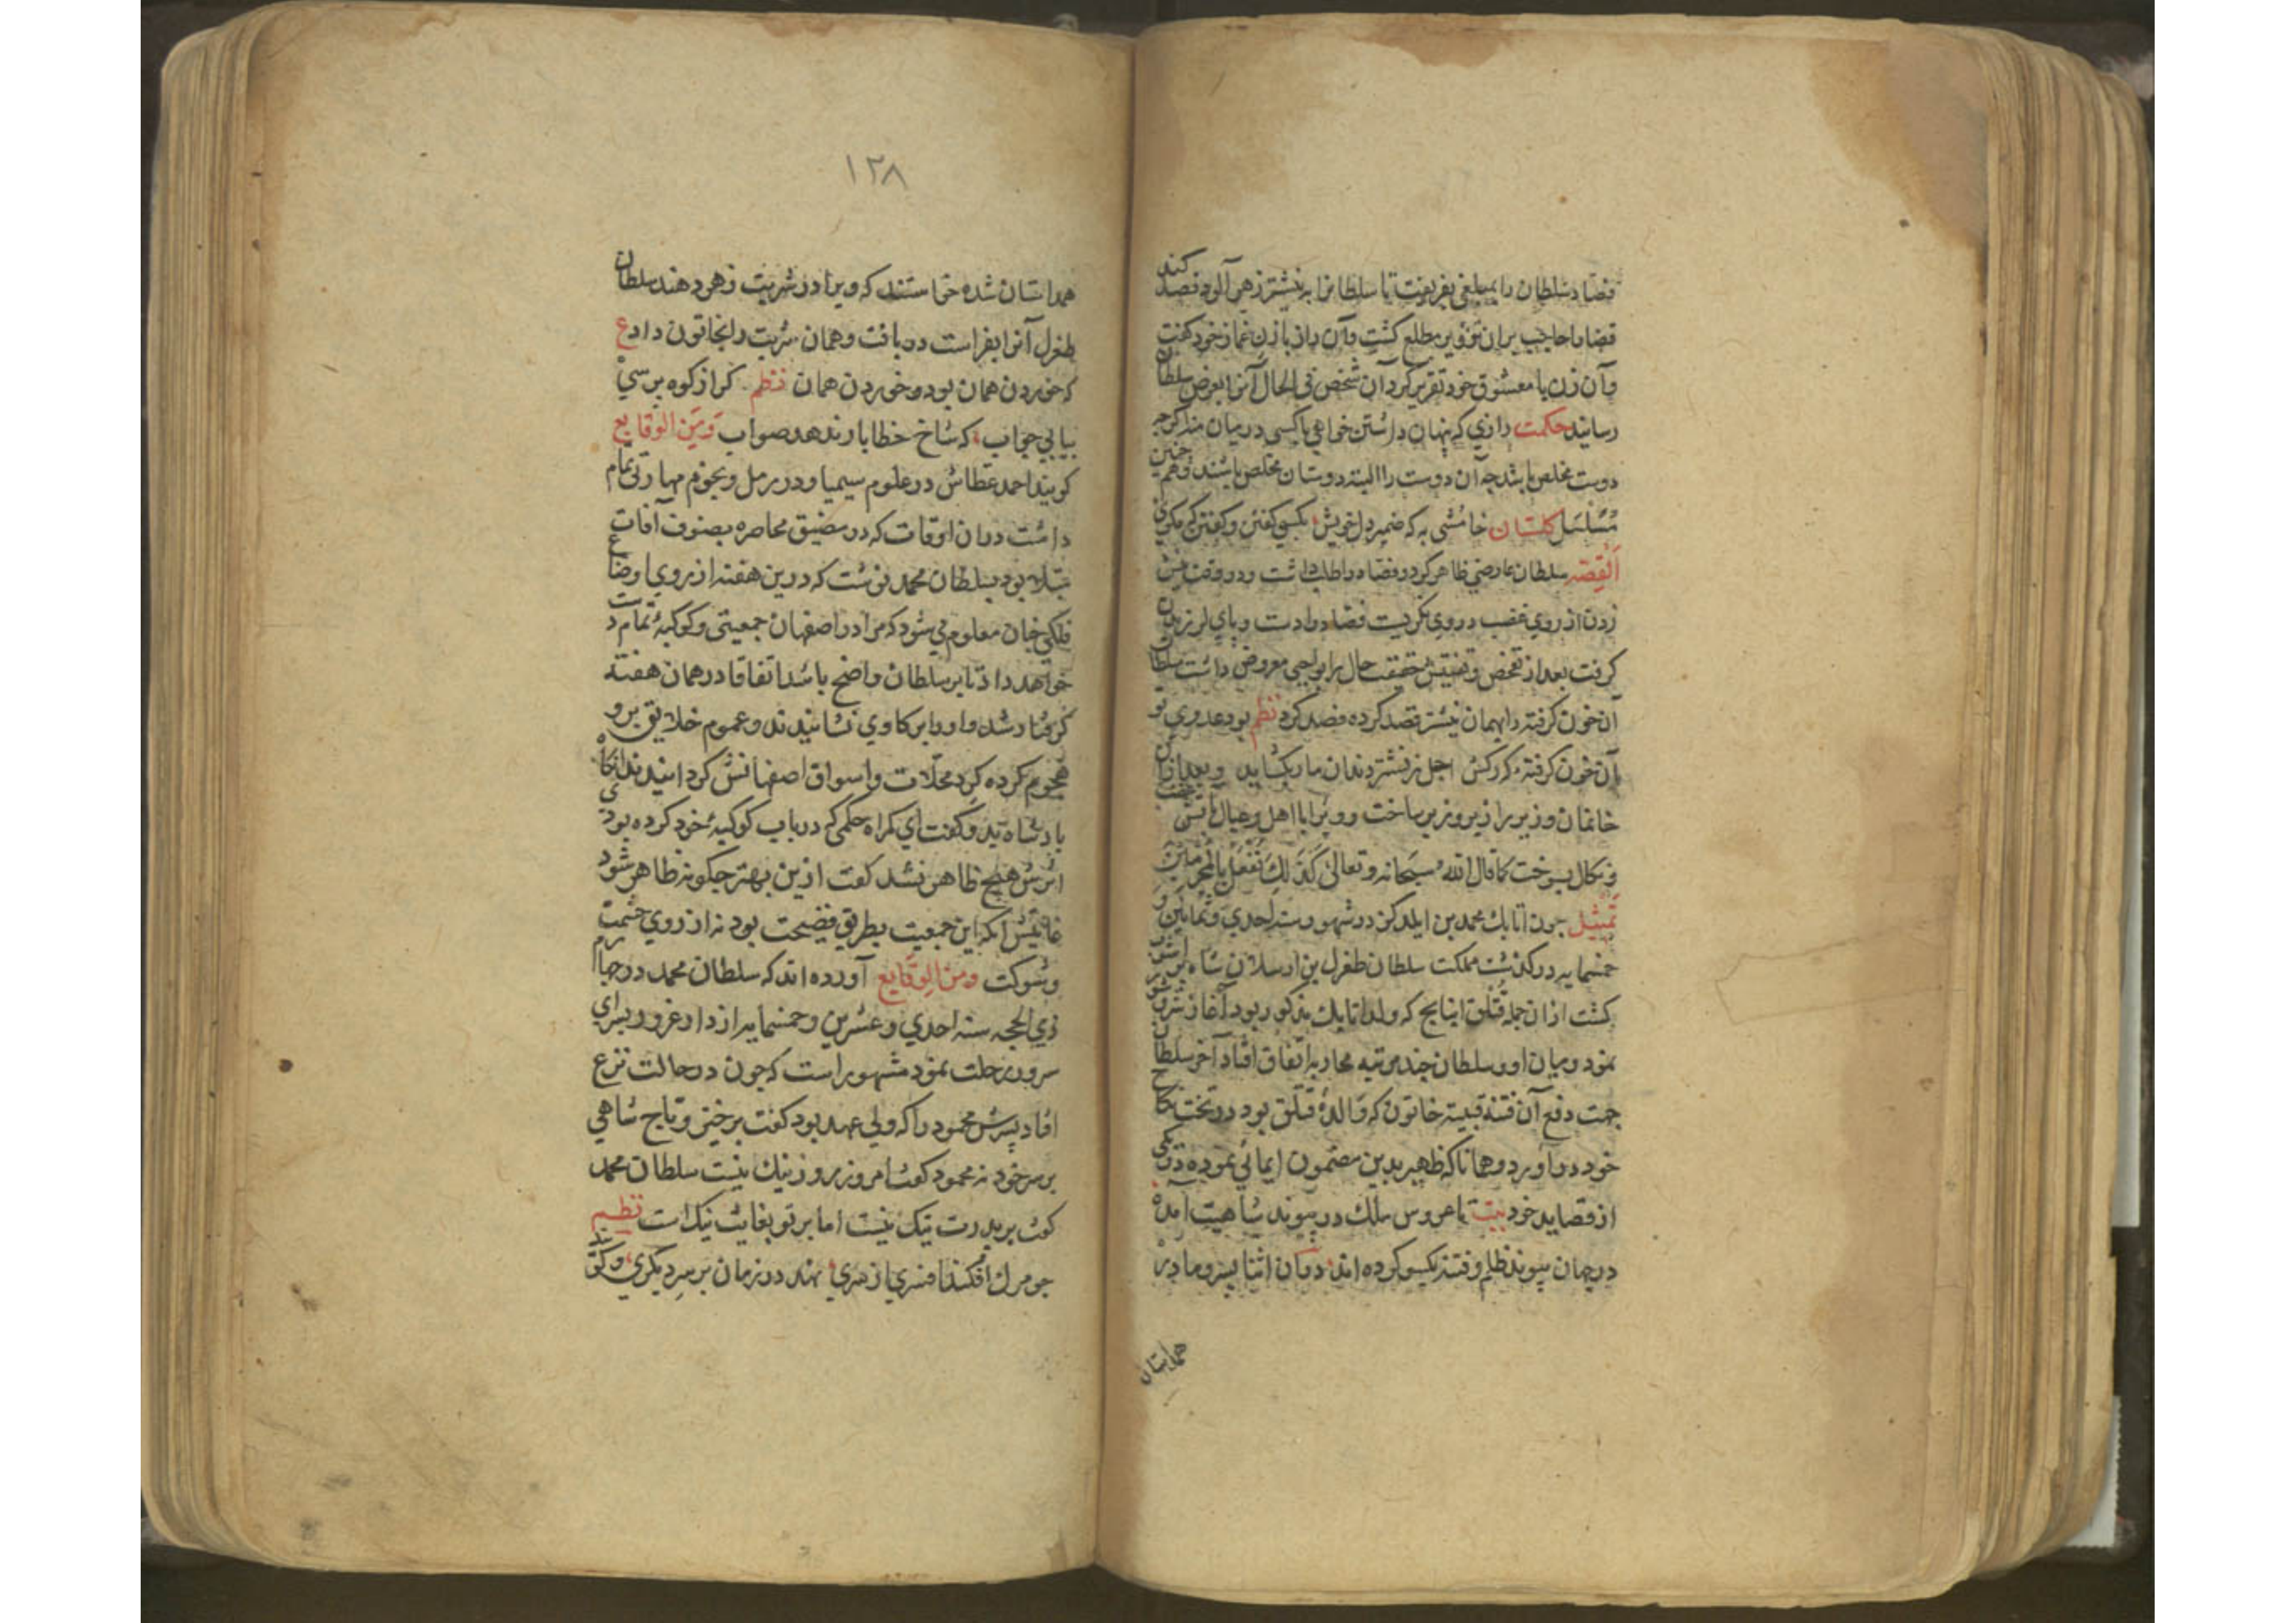 فصاد سلطان را بمبلغی بفریفت تا سلطانرا بنیشتر زهر آلود فصد کند
قضا را حاجب بران تزویر مطلع کشت وآن راز بازن غماز خود کفت
وآن زن با معشوق خود تقریر کرد آن شخص فی الحال آنرا بعرض سلطان
رسانید حکمت رازی که پنهان داشتن خواهی باکسی درمیان منه اکرچه
دوست مخلص باشد چه آن دوست را البته دوستان مخلص باشند وهم چنین
مُسَلسَل کلستان خامُشی به که ضمیر دل خویش بکسی کفتن و کفتن که مکوی
اَلقِصّه سلطان عارضی ظاهر کرد و فصاد را طلب داشت ودر وقت نیش
زدن از روی غضب در وی نکریست فصاد را دست وپای لرزیدن
کرفت بعد از تفحص وتفتیش حقیقت حال برابواجبی معروض داشت سلطان
آن خون کرفته را بهمان نیشتر قصد کرده فصد کرد نظم بود عدوی تو
آن خون کرفته کز رکش اجل بنیشتر دندان مار بکشاید وبعد ازان
خانمان وزیر را زیر وزبر ساخت وویرا با اهل وعیال بآتش
ونکال بسوخت کما قال الله سبحانه وتعالی کَذَلِكَ نَفعَلُ بِالمُجرِمینَ
تمثیل چون اتابك محمد بن ایلدکز در شهور سنه احدی وثمانین و
خمسمایه درکذشت مملکت سلطان طغرل بن ارسلان شاه پر شور
کشت ازان جمله قتلق اینانج که ولد اتابك مذکور بود آغاز شر وشور
نمود ومیان او وسلطان چند مرتبه محاربه اتفاق افتاد آخر سلطان
جهت دفع آن فتنه قتیبه خاتون که والدهٔ قتلق بود در تحت نکاح
خود درآورد وهمانا که ظهیر بدین مضمون ایمائی نموده در یکی
از قصاید خود بیت تا عروس ملك در پیوند شاهیت آمده
در جهان پیوند ظلم وفتنه یکسو کرده اند دران اثنا پسر ومادر
همداستان
١٢٨
همداستان شده خواستند که ویرا در شربت زهر دهند سلطان
طغرل آنرا بفراست دریافت وهمان شربت را بخاتون داد ع
که خوردن همان بود ومردن همان نظم کر از کوه پرسی
بیابی جواب که شاخ خطا بار ندهد صواب وَمِنَ الوَقایع
کویند احمد عطاش در علوم سیمیا ودر رمل ونجوم مهارتی تمام
داشت دران اوقات که در مضیق محاصره بصنوف آفات
مبتلا بود بسلطان محمد نوشت که درین هفته از روی اوضاع
فلکی چنان معلوم می شود که مرا در اصفهان جمعیتی وکوکبهٔ تمام دست
خواهد داد تا بر سلطان واضح باشد اتفاقا در همان هفته
کرفتار شده واورا بر کاوی نشانیدند وعموم خلایق برو
هجوم کرده کرد محلات واسواق اصفهانش کردانیدند آنکاه
پادشاه دید وکفت ای کمراه حکمی که در باب کوکبهٔ خود کرده بودی
اثرش هیچ ظاهر نشد کفت ازین بهتر چکونه ظاهر شود
غایتش آنکه این جمعیت بطریق فضیحت بود نه از روی حشمت
وشوکت ومن الوقایع آورده اند که سلطان محمد در چهارم
ذی الحجه سنه احدی وعشرین وخمسمایه از دار غرور بسرای
سرور رحلت نمود مشهور است که چون در حالت نزع
افتاد پسرش محمود را که ولی عهد بود کفت برخیز وتاج شاهی
بر سر خود نه محمود کفت امروز روز نیك نیست سلطان محمد
کفت بر پدرت نیك نیست اما بر تو بغایت نیك است نظم
چو مرك افکند افسری از سری نهد در زمان بر سر دیکری